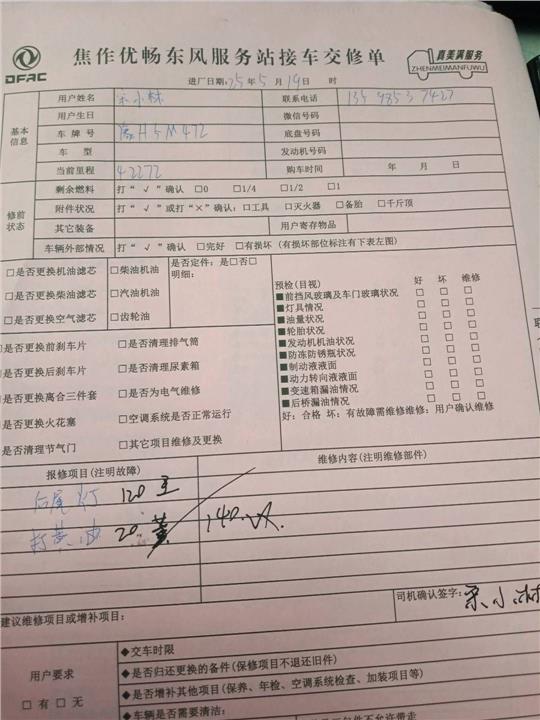 DFAC
焦作优畅东风服务站接车交修单
真美满服务
ZHENMEIMANFUWU
进厂日期:25年5月19日 时
基本信息
用户姓名 小林 联系电话 135 9853 7427
用户生日 微信号码
车牌号 豫H5M472 底盘号码
车型 发动机号码
当前里程 42272 购车时间 年 月 日
修前状态
剩余燃料 打“√”确认 □0 □1/4 □1/2 □1
附件状况 打“√”或打“×”确认:□工具 □灭火器 □备胎 □千斤顶
其它装备 用户寄存物品
车辆外部情况 打“√”确认 □完好 □有损坏(有损坏部位标注有下表左图)
□是否更换机油滤芯 □柴油机油 是否定件:是□否□
明细:
□是否更换柴油滤芯 □汽油机油
□是否更换空气滤芯 □齿轮油
预检(目视) 好 坏 维修
■前挡风玻璃及车门玻璃状况 □ □ □
■灯具情况 □ □ □
■油量状况 □ □ □
■轮胎状况 □ □ □
■发动机机油状况 □ □ □
■防冻防锈瓶状况 □ □ □
■制动液液面 □ □ □
■动力转向液液面 □ □ □
■变速箱漏油情况 □ □ □
■后桥漏油情况 □ □ □
好:合格 坏:有故障需维修维修:用户确认维修
□是否更换前刹车片 □是否清理排气筒
□是否更换后刹车片 □是否清理尿素箱
□是否更换离合三件套 □是否为电气维修
□是否更换火花塞 □空调系统是否正常运行
□是否清理节气门 □其它项目维修及更换
报修项目(注明故障) 维修内容(注明维修部件)
后尾灯 120 王
打黄油 20 黄 140.
司机确认签字: 小林
建议维修项目或增补项目:
用户要求
□有 □无
◆交车时限
◆是否归还更换的备件(保修项目不退还旧件)
◆是否增补其他项目(保养、年检、空调系统检查、加装项目等)
◆车辆是否需要清洁: